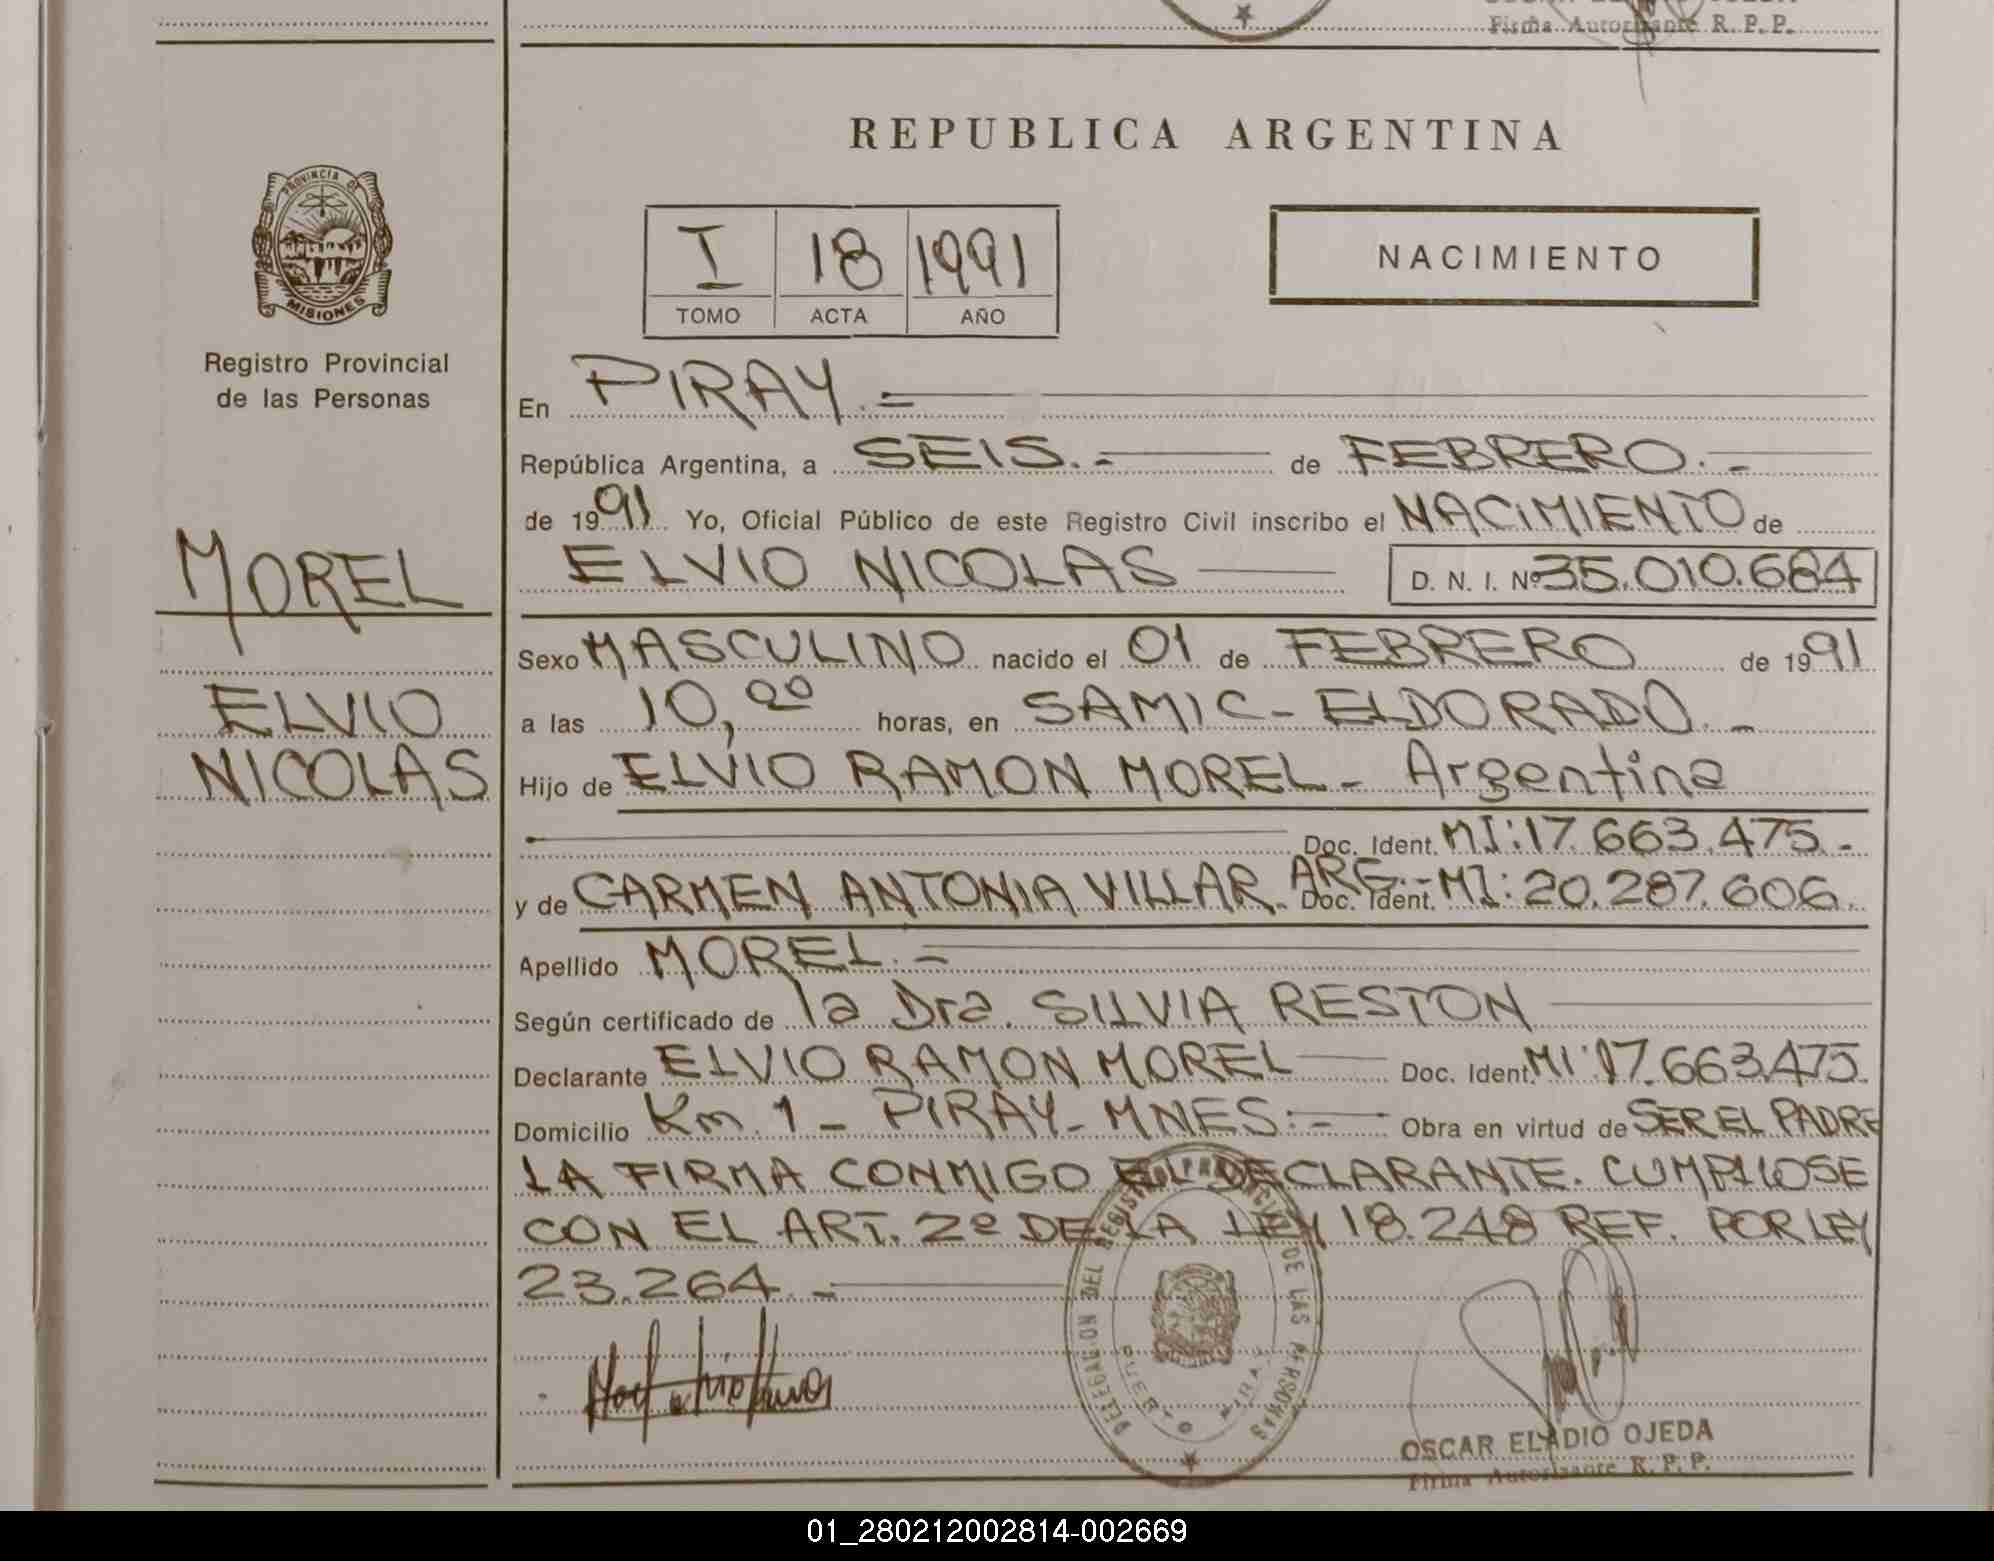 Firma Autorizante R. P. P.
PROVINCIA DE
MISIONES
Registro Provincial
de las Personas
MOREL
ELVIO
NICOLAS
REPUBLICA ARGENTINA
I 18 1991
TOMO ACTA AÑO
NACIMIENTO
En PIRAY.=
República Argentina, a SEIS.= de FEBRERO.-
de 1991 Yo, Oficial Público de este Registro Civil inscribo el NACIMIENTO de
ELVIO NICOLAS D. N. I. Nº 35.010.684
Sexo MASCULINO nacido el 01 de FEBRERO de 1991
a las 10,00 horas, en SAMIC-ELDORADO.-
Hijo de ELVIO RAMON MOREL- Argentina
Doc. Ident. MI:17.663.475.-
y de CARMEN ANTONIA VILLAR- ARG.- Doc. Ident. MI:20.287.606.
Apellido MOREL.=
Según certificado de la Dra. SILVIA RESTON
Declarante ELVIO RAMON MOREL Doc. Ident. MI:17.663.475.
Domicilio Km. 1 - PIRAY- MNES:= Obra en virtud de SER EL PADRE
LA FIRMA CONMIGO EL DECLARANTE. CUMPLIOSE
CON EL ART. 2º DE LA LEY 18.248 REF. POR LEY
23.264.-
DELEGACION DEL REGISTRO PROVINCIAL DE LAS PERSONAS
PUERTO PIRAY
OSCAR ELADIO OJEDA
Firma Autorizante R. P. P.
01_280212002814-002669